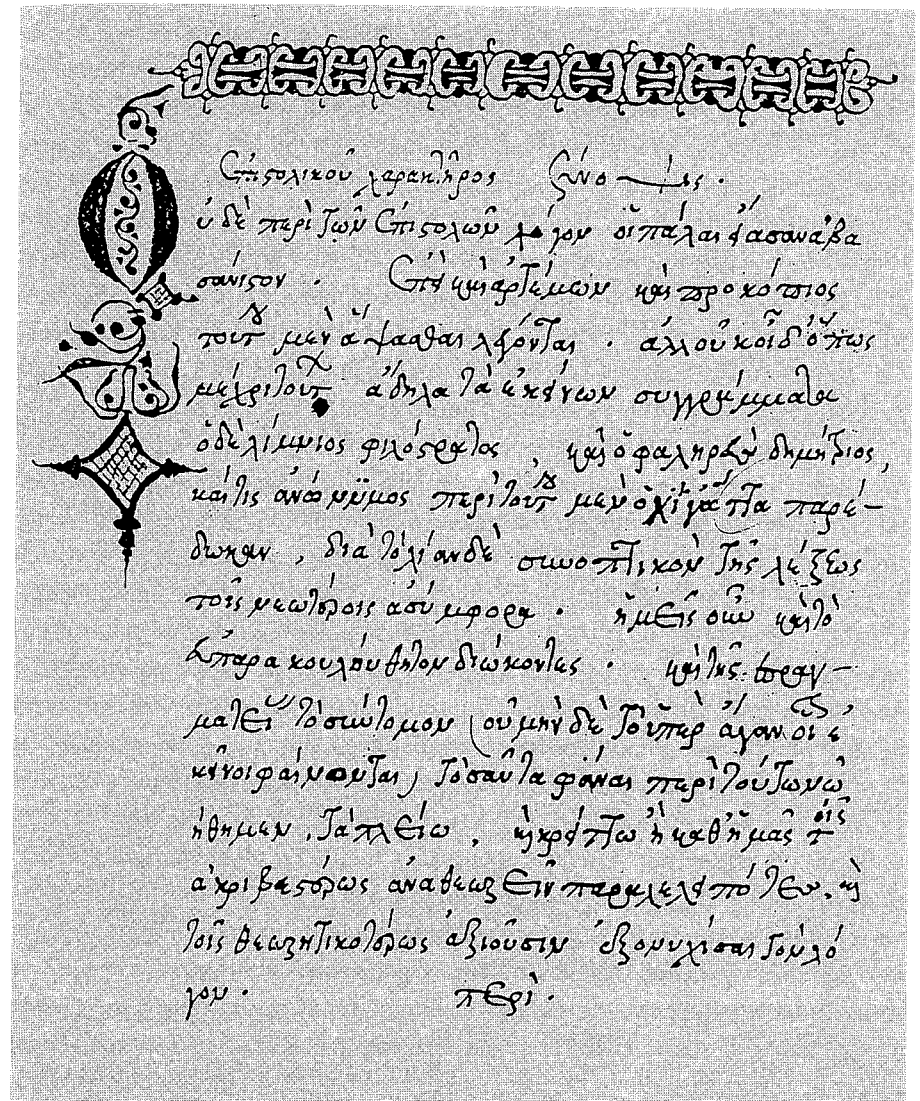 Ἐπιστολικοῦ χαρακτῆρος ζύνοψις.
ὐδὲ περὶ τῶν ἐπιστολῶν λόγον οἱ πάλαι εἴασαν ἀβα
σάνιστον. ἐπεὶ καὶ ἀρτέμων καὶ προκόπιος
τούτου μὲν ἅψασθαι λέγονται. ἀλλ οὐκ οἶδ ὅπως
μέχρι τοῦ ἄδηλα τὰ ἐκείνων συγγράμματα
ὁ δὲ λίμνιος φιλόστρατος, καὶ ὁ φαληρεὺς δημήτριος,
καί τις ἀνώνυμος περὶ τούτου μὲν οὐχὶ παρέ-
δωκαν, διὰ τὸ λίαν δὲ συνοπτικὸν τῆς λέξεως
τοῖς νεωτέροις ἀσύμφορα. ἡμεῖς οὖν καὶ τὸ
εὐπαρακολούθητον διώκοντες. καὶ τῆς πραγ-
ματείας τὸ σύντομον (οὐ μὴν δὲ τοῦ ὑπὲρ ἄγαν ὡς οἱ ἐ
κεῖνοι φαίνονται) τοσαῦτα φάναι περὶ τούτων ὠ
ήθημεν, τὰ πλείω, καὶ κρείττω ἢ καθ ἡμᾶς τοῖς
ἀκριβεστέρως ἀναθεωρεῖν παρακλελοιπότες. καὶ
τοῖς θεωρητικοτέρως ἀξιοῦσιν ἐξονυχίσαι τὸν λό
γον. περὶ.